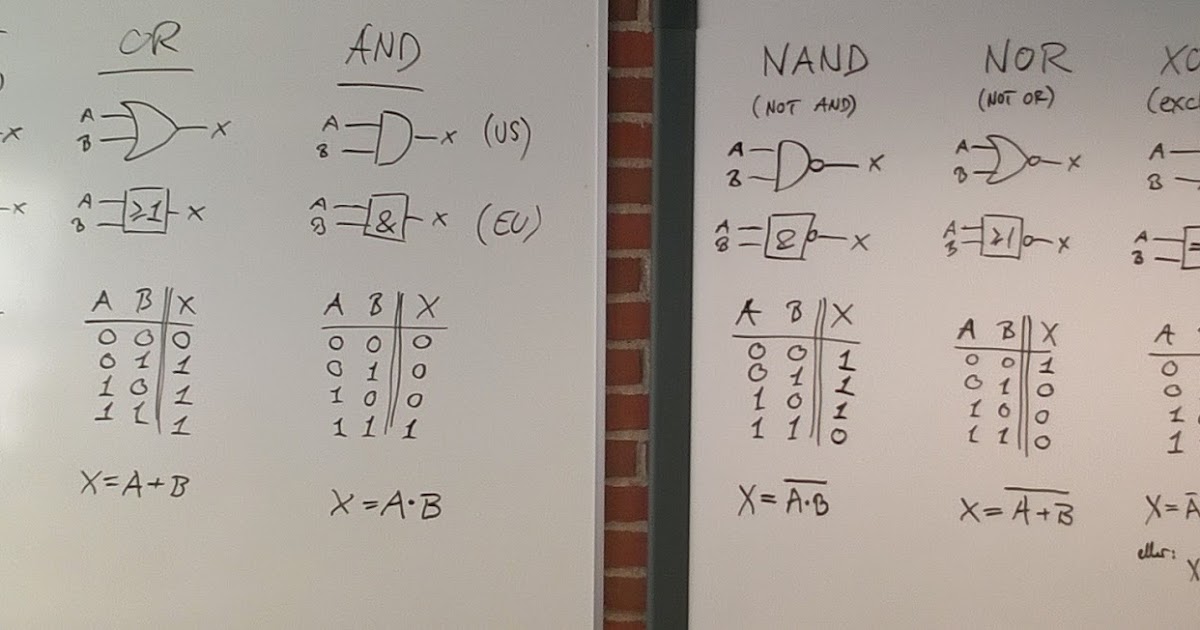 OR
A
B
X
A
B
≥1
X
A B X
0 0 0
0 1 1
1 0 1
1 1 1
X=A+B
AND
A
B
X (US)
A
B
&
X (EU)
A B X
0 0 0
0 1 0
1 0 0
1 1 1
X=A·B
NAND
(NOT AND)
A
B
X
A
B
&
X
A B X
0 0 1
0 1 1
1 0 1
1 1 0
X=A̅·̅B̅
NOR
(NOT OR)
A
B
X
A
B
≥1
X
A B X
0 0 1
0 1 0
1 0 0
1 1 0
X=A̅+̅B̅
XO
(exc
A
B
A
B
=
A
0
0
1
1
X=A̅
eller:
X
X
X